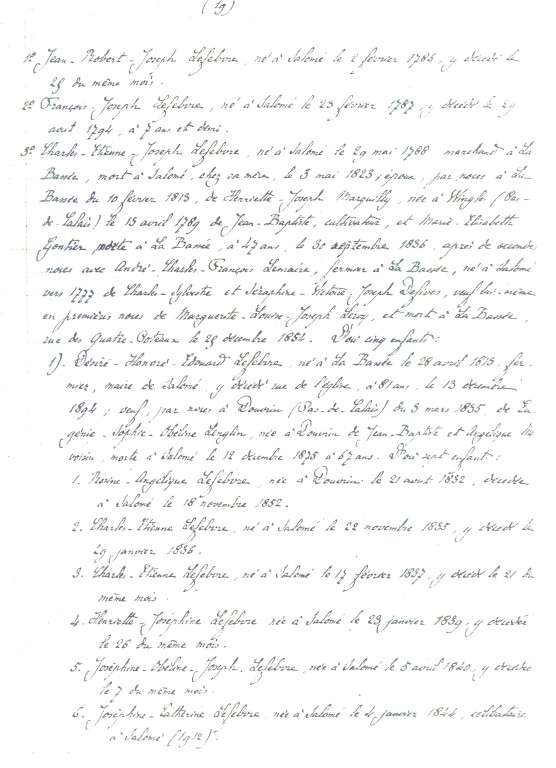 (19)
1º Jean-Robert-Joseph Lefebvre, né à Salomé le 2 février 1786, y décédé le
29 du même mois.
2º François-Joseph Lefebvre, né à Salomé le 23 février 1787, y décédé le 29
aout 1794, à 7 ans et demi.
3º Charles-Etienne-Joseph Lefebvre, né à Salomé le 29 mai 1788 marchand à La
Bassée, mort à Salomé, chez sa mère, le 3 mai 1823; époux, par noces à La
Bassée du 10 février 1813, de Henriette-Joseph Marquilly, née à Wingles (Pas-
de-Calais) le 13 avril 1789 de Jean-Baptiste, cultivateur, et Marie-Elisabeth
Gontier morte à La Bassée, à 47 ans, le 30 septembre 1836, après de secondes
noces avec André-Charles-François Lemaire, fermier à La Bassée, né à Salomé
vers 1777 de Charles-Sylvestre et Séraphine-Victoire-Joseph Desfives, veuf lui-même
en premières noces de Marguerite-Louise-Joseph Leroy, et mort à La Bassée,
rue des Quatre-Coteaux le 29 décembre 1854. D'où cinq enfants:
1). Désiré-Honoré-Edouard Lefebvre, né à La Bassée le 28 avril 1813. fer-
mier, maire de Salomé, y décédé rue de l'église, à 81 ans, le 13 décembre
1894; veuf, par noces à Douvrin (Pas-de-Calais) du 3 mars 1835, de Eu-
génie-Sophie-Obéline Lenglin, née à Douvrin de Jean-Baptiste et Angélique
voisin, morte à Salomé le 12 décembre 1875 à 67 ans. D'où sept enfant:
1. Rosine-Angélique Lefebvre, née à Douvrin le 21 aout 1832, décédée
à Salomé le 18 novembre 1852.
2. Charles-Etienne Lefebvre, né à Salomé le 22 novembre 1835, y décédé le
29 janvier 1836.
3. Charles-Etienne Lefebvre, né à Salomé le 17 février 1837, y décédé le 21 du
même mois.
4. Henriette-Joséphine Lefebvre née à Salomé le 23 janvier 1839, y décédée
le 26 du même mois.
5. Joséphine-Obéline-Joseph Lefebvre, née à Salomé le 5 avril 1840, y décédée
le 7 du même mois.
6. Joséphine-Catherine Lefebvre, née à Salomé le 4 janvier 1844, célibataire
à Salomé (1912).